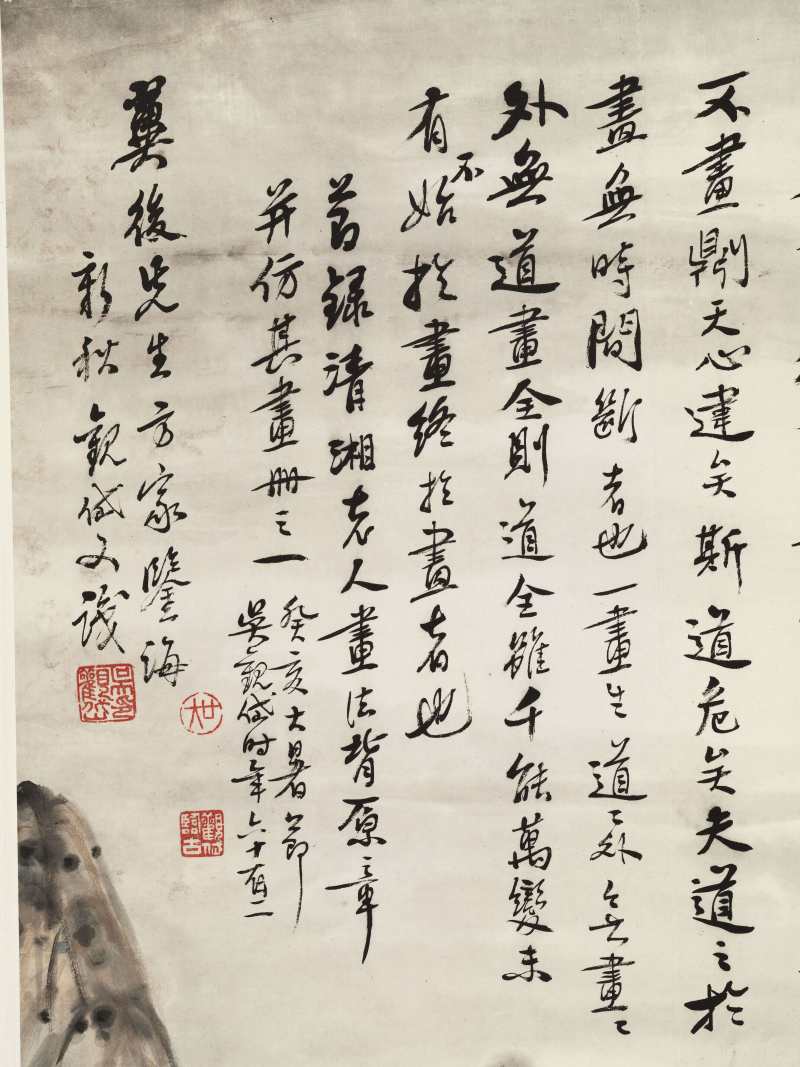 不畫鼎天心違矣斯道危矣夫道之於
畫無時間斷者也一畫生道〻外無畫〻
外無道畫全則道全雖千能萬變未
有不始於畫終於畫者也
節錄清湘老人畫法背原章
并仿其畫冊之一
癸亥大暑節
吳觀岱時年六十有二
翼後先生方家鑒誨
新秋觀岱又識
觀岱
臨古